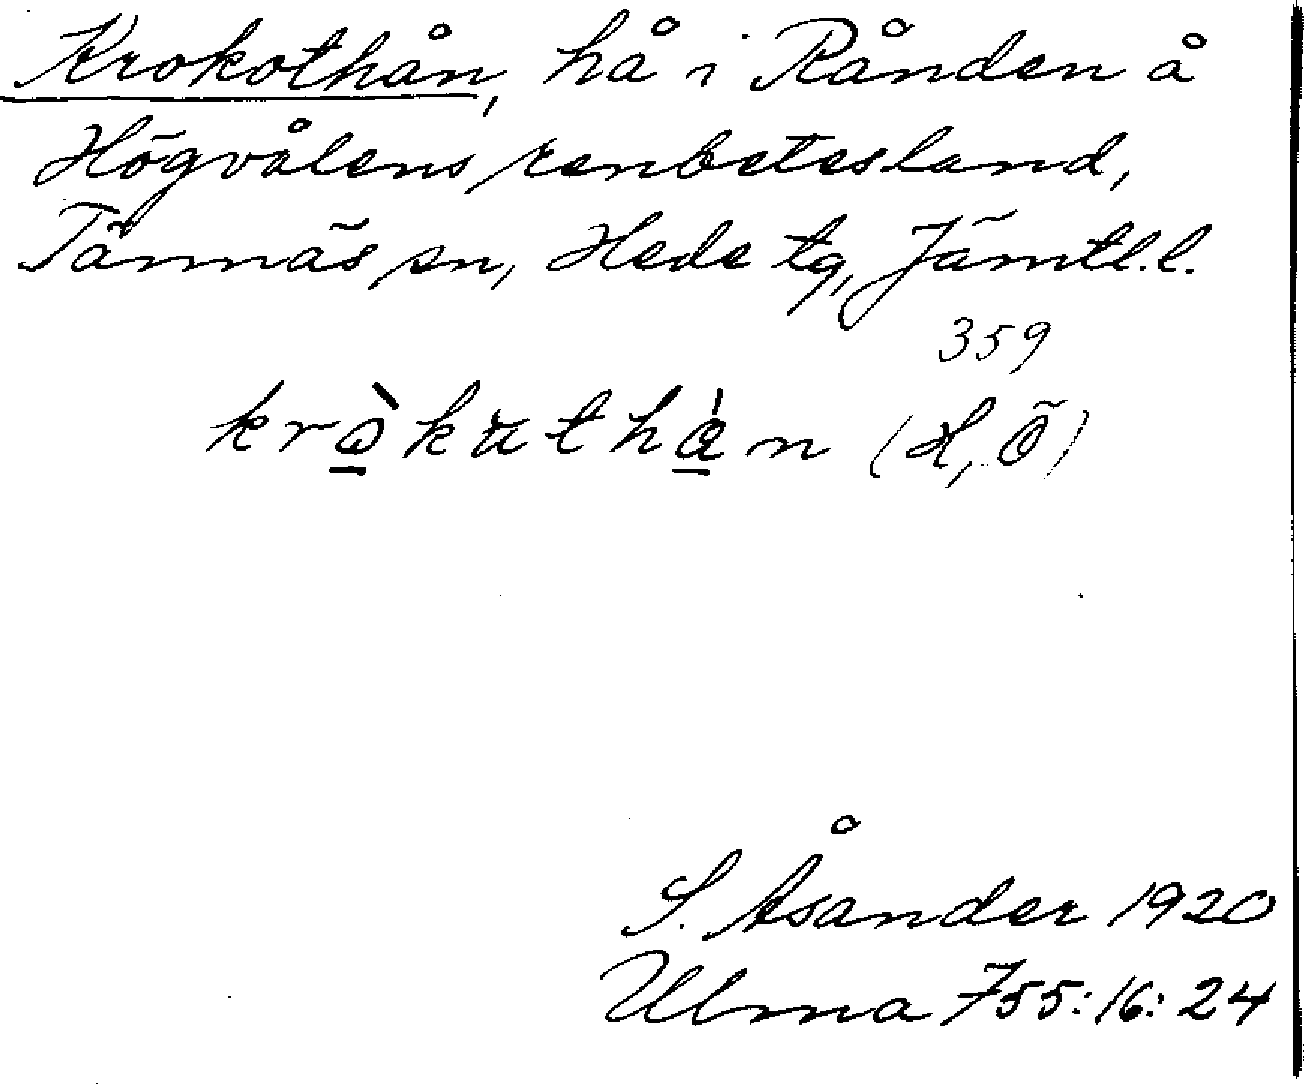 Krokothån, hå i Rånden å
Högvålens renbetesland,
Tännäs sn, Hede tg, Jämtl.l.
359
krò̱kathá̱n (H, Ö)
S. Åsander 1920
Ulma 755:16:24